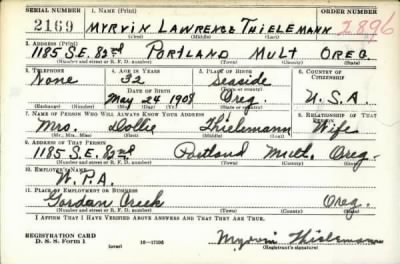 SERIAL NUMBER 1. NAME (Print) ORDER NUMBER
2169 MYRVIN LAWRENCE THIELEMANN 2896
(First) (Middle) (Last)
2. ADDRESS (Print)
1185 S.E. 82nd PORTLAND MULT OREG.
(Number and street or R. F. D. number) (Town) (County) (State)
3. TELEPHONE 4. AGE IN YEARS 5. PLACE OF BIRTH 6. COUNTRY OF CITIZENSHIP
None 32 Seaside
DATE OF BIRTH (Town or county)
May 24 1908 Oreg. U.S.A.
(Exchange) (Number) (Mo.) (Day) (Yr.) (State or country)
7. NAME OF PERSON WHO WILL ALWAYS KNOW YOUR ADDRESS 8. RELATIONSHIP OF THAT PERSON
Mrs. Dollie Thielemann Wife
(Mr., Mrs., Miss) (First) (Middle) (Last)
9. ADDRESS OF THAT PERSON
1185 S.E. 82nd Portland Mult. Oreg.
(Number and street or R. F. D. number) (Town) (County) (State)
10. EMPLOYER'S NAME
W.P.A.
11. PLACE OF EMPLOYMENT OR BUSINESS
Gordan Creek Oreg.
(Number and street or R. F. D. number) (Town) (County) (State)
I AFFIRM THAT I HAVE VERIFIED ABOVE ANSWERS AND THAT THEY ARE TRUE.
REGISTRATION CARD
D. S. S. Form 1 (over) 16—17105 Myrvin Thielemann
(Registrant's signature)